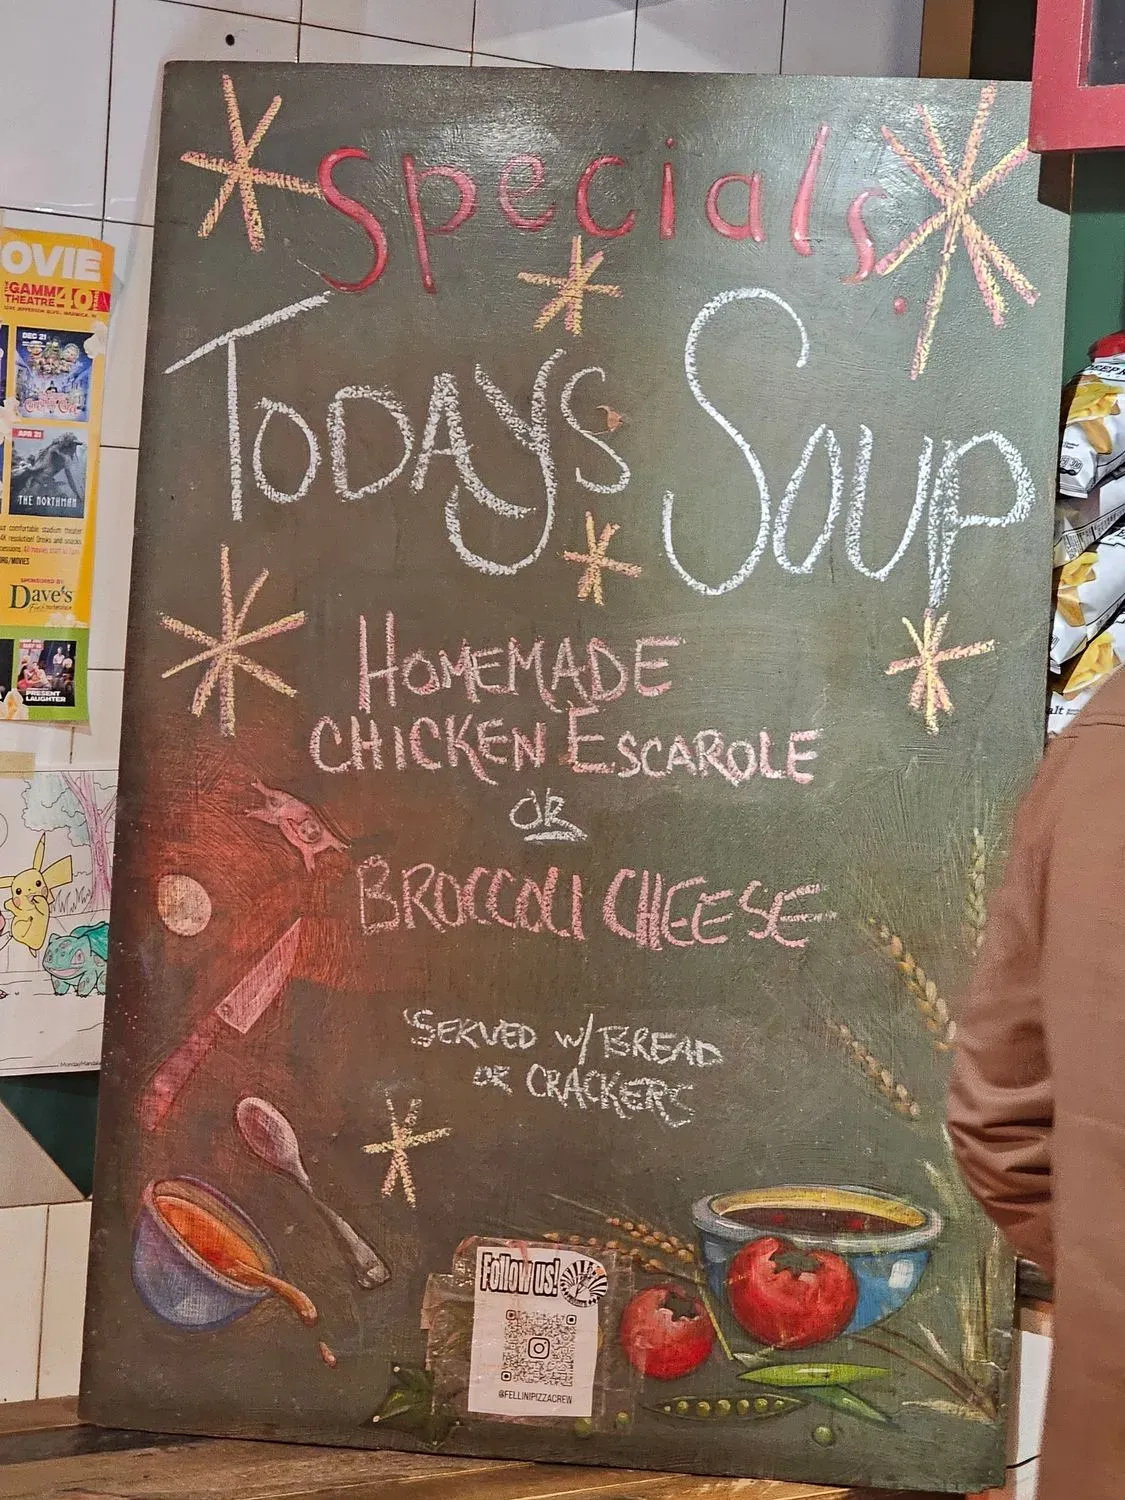 Specials
TODAYS SOUP
HOMEMADE
CHICKEN ESCAROLE
OR
BROCCOLI CHEESE
SERVED W/ BREAD
OR CRACKERS
Follow us!
@FELLINIPIZZACREW
OVIE
THE GAMM
THEATRE 40
DEC 21
APR 21
THE NORTHMAN
SPONSORED BY
Dave's
PRESENT
LAUGHTER